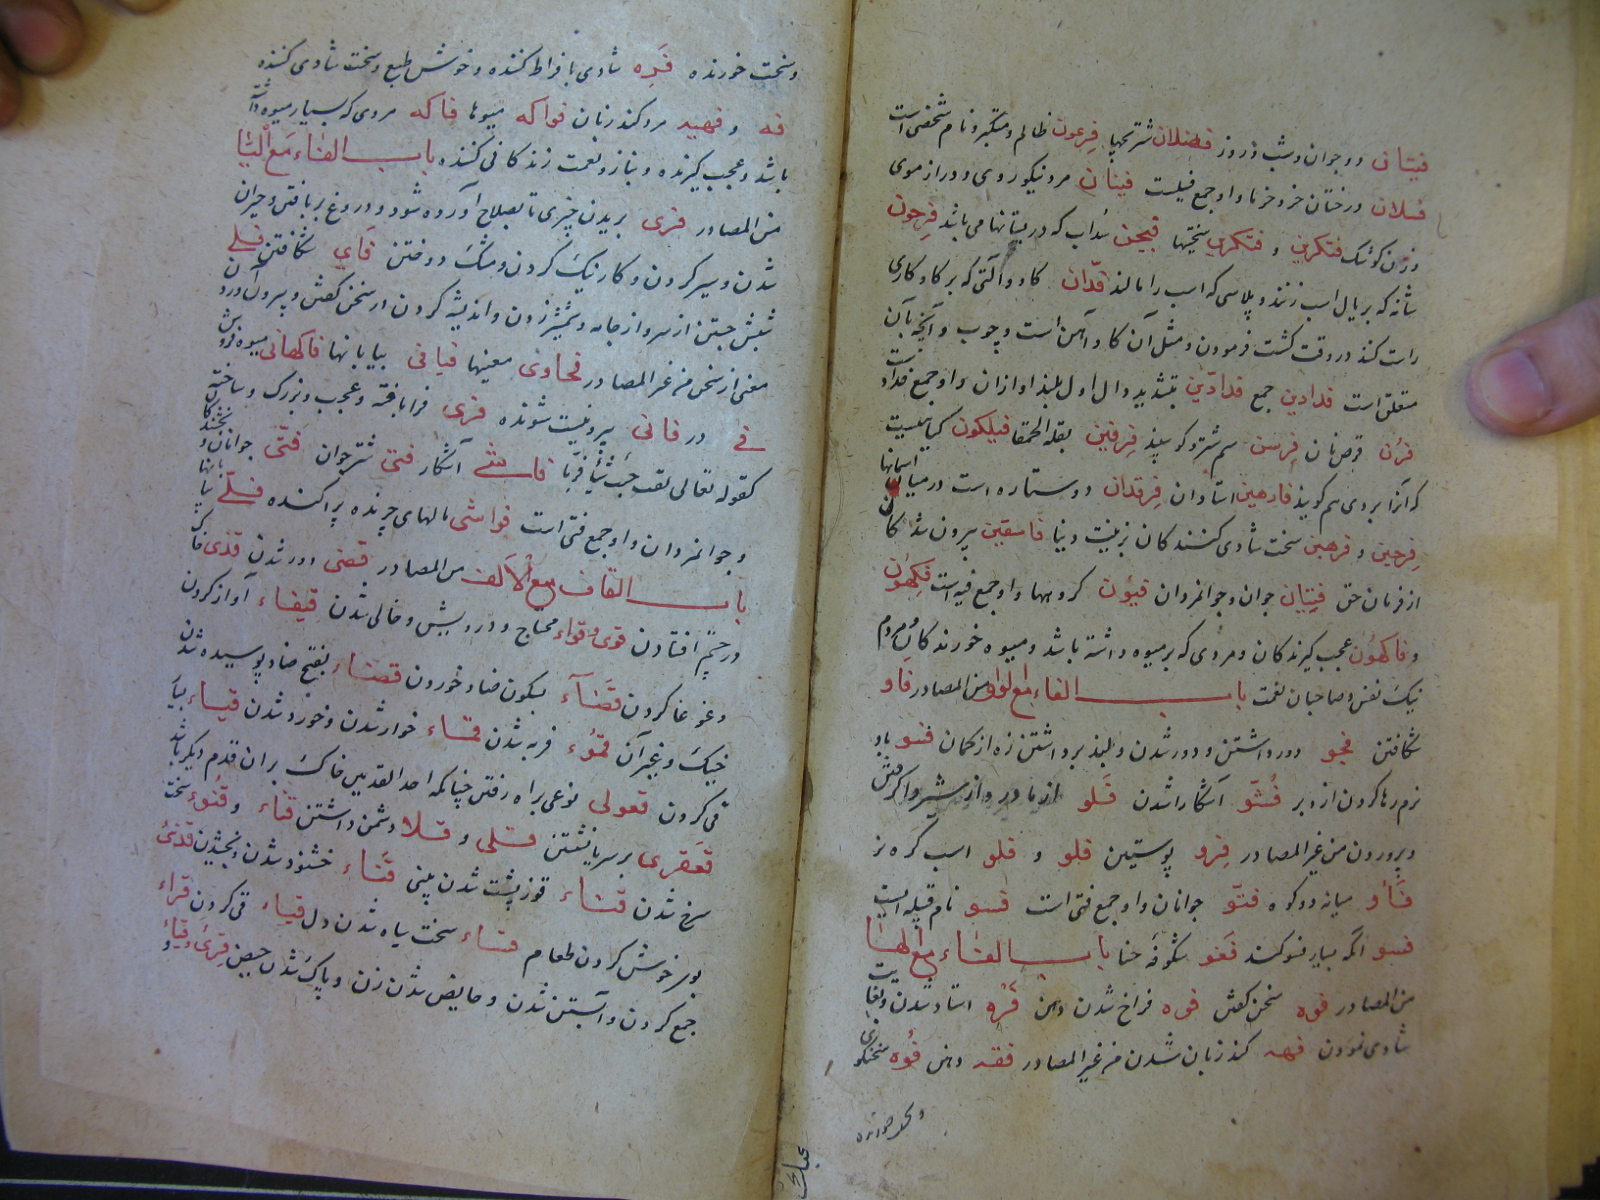 فتیان دو جوان و شب و روز فضلان شتر بچها فرعون ظالم و متکبر و نام شخصی است
فسلان درختان خرد خرما و او جمع فیلست فینان مرد نیکو روی و دراز موی
و زن کوشک فتکرین و فتکرین سختیها فیجن سداب که در بستانها می باشد فرجون
شانه که بر یال اسب زنند و پلاسی که اسب را مالند فدان کاو و آلتی که بر کاو کاری
راست کنند در وقت کشت فرمودن و مثل آن کاو آهن است و چوب و آنچه بآن
متعلق است فدادین جمع فدادین بتشدید دال اول بلند آوازان و او جمع فداد است
فرن قرص نان فرسن سم شتر و کوسپند فرفین بقلة الحمقا فیلکون کیاهیست
که آنرا بردی هم کویند فارهین استادان فرقدان دو ستاره است در میان آسمانها
فرحین و فرهین سخت شادی کنندکان بزینت دنیا فاسقین بیرون شدکان
از فرمان حق فتیان جوان و جوانمردان فیؤن کروهها و او جمع فیه است فکهون
و فاکهون عجب کیرندکان و مردی که بر میوه داشته باشد و میوه خورندکان و مردم
نیک نفس و صاحبان نعمت باب الفاء مع الواو من المصادر فاو
شکافتن فجو دور داشتن و دور شدن و بلند برداشتن زه از کمان فسو باد
نرم رها کردن از دبر فشو آشکارا شدن فلو از مادر و از شیر واکرفتن
و پروردن من غیر المصادر فرو پوستین فلو و فلو اسب کره نر
فأو میانه دو کوه فتو جوانان و او جمع فتی است فسو نام قبیله ایست
فسو آنکه بسیار فسو کند فغو شکوفه حنا باب الفاء مع الها
من المصادر فوه سخن کفتن فوه فراخ شدن دهن فره استاد شدن و بغایت
شادی نمودن فهه کند زبان شدن من غیر المصادر فقه دهن فوه سخنکوی
و سخت خورنده
و سخت خورنده فره شادی بافراط کننده و خوش طبع و سخت شادی کننده
فه و فهیه مرد کند زبان فواکه میوها فاکه مردی که بسیار میوه داشته
باشد و عجب کیرنده و بناز و نعمت زندکانی کننده باب الفاء مع الیا
من المصادر فری بریدن چیزی تا بصلاح آورده شود و دروغ بر بافتن و حیران
شدن و سیر کردن و کار نیک کردن و مشک دوختن فای شکافتن فلی
شپش جستن از سر و از جامه و شمشیر زدن و اندیشه کردن از سخن کفتن و بیرون آوردن
معنی از سخن من غیر المصادر فحاوی معنیها فیافی بیابانها فاکهانی میوه فروش
فی در فانی پیر و نیست شونده فری فرا بافته و عجب و بزرک و ساخته
کقوله تعالی لقد جئت شیئا فریا فاشی آشکار فتی شتر جوان فتی جوانان
و جوانمردان و او جمع فتی است فواشی مالهای چرنده پراکنده فلی
باب القاف مع الالف من المصادر قصی دور شدن قذی خاک
در چشم افتادن قوی و قواء محتاج و درویش و خالی شدن قیفاء آواز کردن
و غوغا کردن قضاء بسکون ضاد خوردن قضاء بفتح ضاد پوسیده شدن
خیک و غیر آن قموء فربه شدن قماء خوار شدن و خورد شدن قیاء
قی کردن قعولی نوعی براه رفتن چنانکه احد القدمین خاک بر آن قدم دیکر باشد
قعفری بر سر پا نشستن قلی و قلا دشمن داشتن قناء و قنوء سخت
سرخ شدن قناء قوز پشت شدن بینی قناء خشنود شدن
بوی خوش کردن طعام قساء سخت سیاه شدن دل قیاء قی کردن قراء
جمع کردن و آبستن شدن و حایض شدن زن و پاک شدن حیض